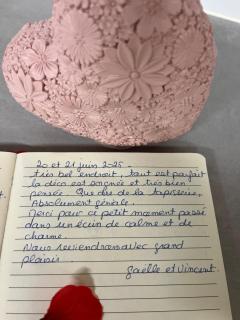 20 et 21 juin 2025.
très bel endroit, tout est parfait
la déco est soignée et très bien
pensée. Que dire de la tapisserie,
Absolument géniale.
Merci pour ce petit moment passé
dans un écrin de calme et de
charme.
Nous reviendrons avec grand
plaisir.
Gaëlle et Vincent.